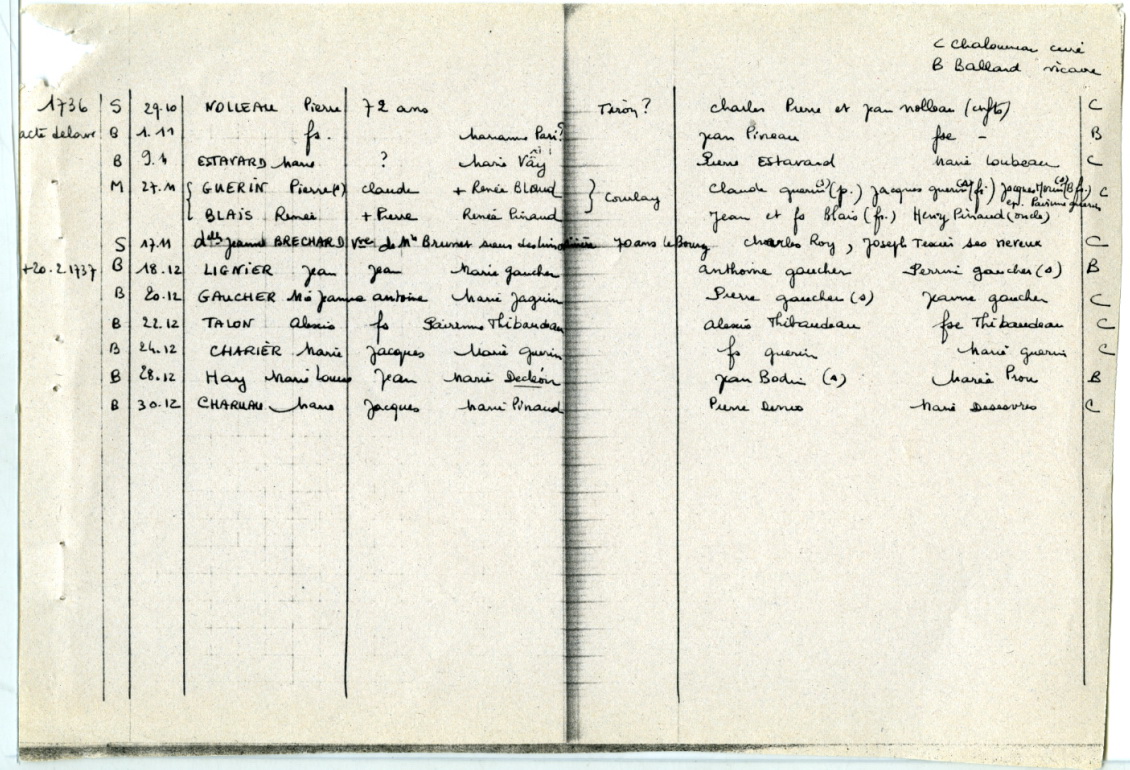 C Chalonneau curé
B Ballard vicaire
1736 S 29.10 NOLLEAU Pierre 72 ans Tiron? Charles Pierre et Jean Nolleau (enfts) C
acte B 1.11 fs. Marianne Pari? Jean Pineau fse - B
B 9.11 ESTAVARD Marie ? Marie Pierre ESTAVARD Marie Loubeau C
M 27.11 GUERIN Pierre(s) Claude + Renée BLAUD Coulay Claude Guerin(s) (p.) Jacques Guerin(s) (f.) Jacques (s) (B.fr.) C
BLAIS Renée + Pierre Renée PINAUD Jean et fs Blais (fr.) Henry Pinaud (oncle)
S 17.11 dlle Jeanne BRECHARD Vve de Mr Brunet sieur 70 ans le Bourg Charles Roy, Joseph ses neveux C
+20.2.1737 B 18.12 LIGNIER Jean Jean Marie Gaucher Anthoine Gaucher Perrine Gaucher (s) B
B 20.12 GAUCHER Mie Jeanne Antoine Marie Jaquin Pierre Gaucher (s) Jeanne Gaucher C
B 22.12 TALON Alexis fs Thibaudeau Alexis Thibaudeau fse Thibaudeau C
B 24.12 CHARIER Marie Jacques Marie Guerin fs Guerin Marie Guerin C
B 28.12 HAY Marie Louise Jean Marie Jean Bodin (s) Marie Prou B
B 30.12 Marie Jacques Marie Pinaud Pierre Marie C